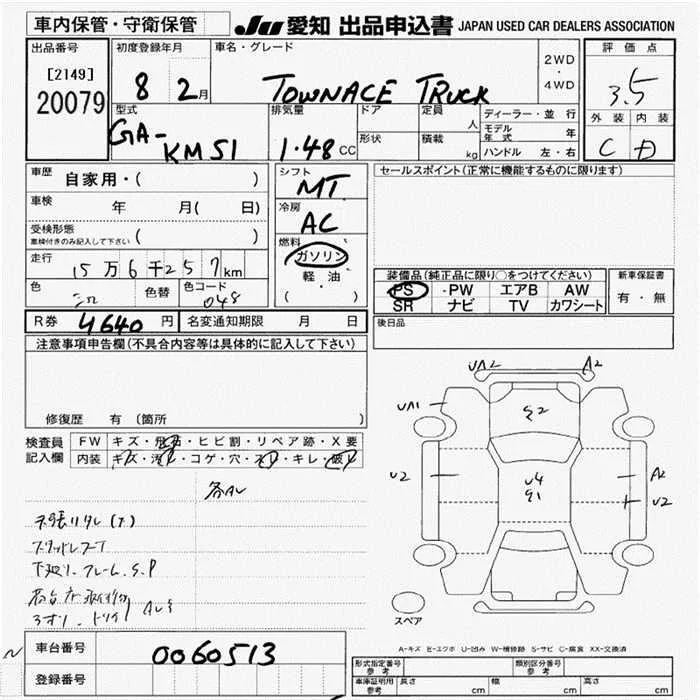 車内保管・守衛保管
JU 愛知 出品申込書 JAPAN USED CAR DEALERS ASSOCIATION
出品番号
[2149]
20079
初度登録年月
8 2月
車名・グレード
TOWNACE TRUCK
2WD
・
4WD
評価点
3.5
外装 内装
C D
型式
GA-
KM51
排気量
1.48 CC
ドア
形状
定員
人
積載
kg
ディーラー・並行
モデル年式 年
ハンドル 左・右
車歴 自家用・( )
車検 年 月( 日)
受検形態
車検付きのみ記入して下さい ( )
走行
15万6千257km
色 色替 色コード
048
シフト
MT
冷房
AC
燃料
ガソリン
軽・油
( )
セールスポイント(正常に機能するものに限ります)
装備品(純正品に限り○をつけてください)
PS ・PW エアB AW
SR ナビ TV カワシート
新車保証書
有・無
R券 4640 円 名変通知期限 月 日
後日品
注意事項申告欄(不具合内容等は具体的に記入して下さい)
修復歴 有 (箇所 )
検査員
記入欄
FW キズ・飛石・ヒビ割・リペア跡・X要
内装 キズ・汚れ・コゲ・穴・スレ・キレ・破れ
UA2 A2
UA1
S2
U2
U4
S1
A2
U2
スペア
A-キズ E-エクボ U-凹み W-補修跡 S-サビ C-腐食 XX-交換済
車台番号 0060513
登録番号
形式指定番号
参考
類別区分番号
参考
車庫証明用
参考
長さ cm 幅 cm 高さ cm